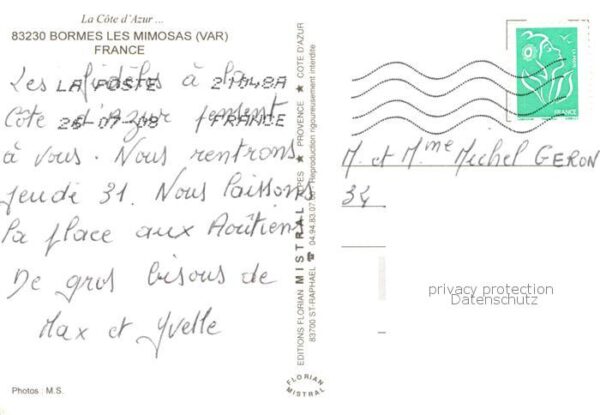 La Côte d'Azur ...
83230 BORMES LES MIMOSAS (VAR)
FRANCE
Les fidèles à la
Côte d'Azur pensent
à vous. Nous rentrons
jeudi 31. Nous laissons
la place aux Aoûtiens
De gros bisous de
Max et Yvette
Photos : M.S.
LA POSTE 21548A
25-07-08 FRANCE
EDITIONS FLORIAN MISTRAL ALPES ★ PROVENCE ★ COTE D'AZUR
83700 ST-RAPHAEL ☎ 04.94.83.07 Reproduction rigoureusement interdite
FLORIAN
MISTRAL
FRANCE
M. et Mme Michel GERON
34
privacy protection
Datenschutz